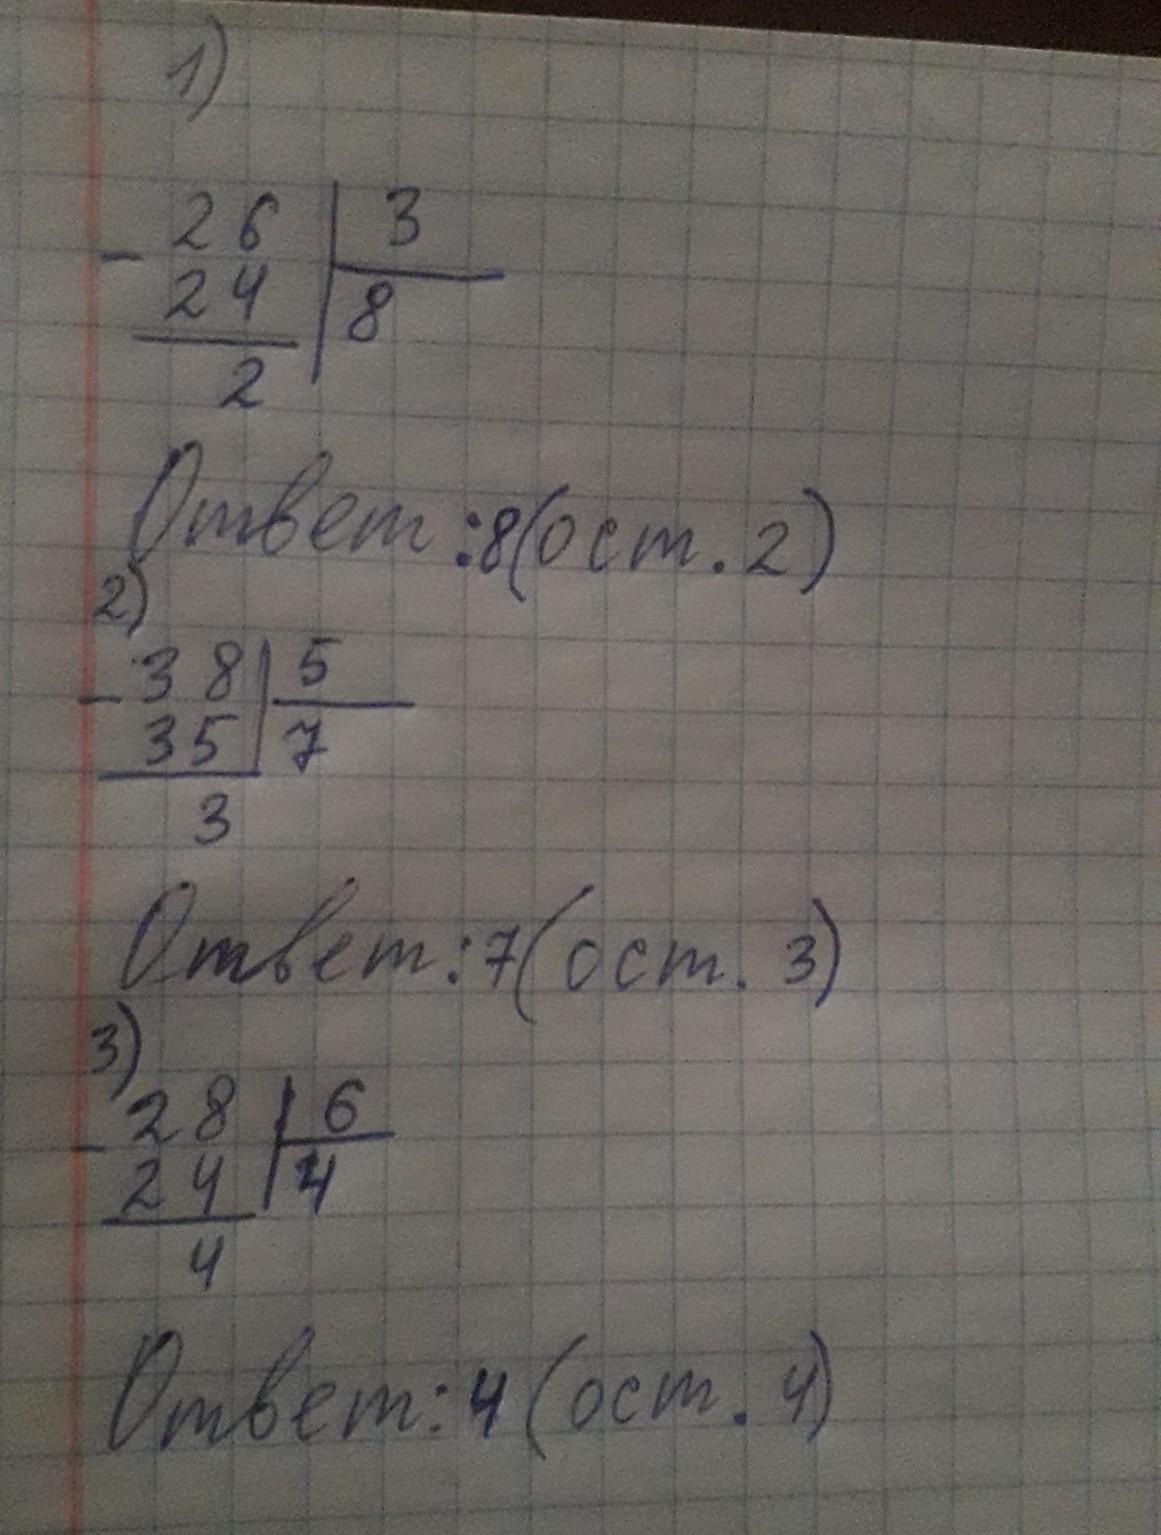 1)
- 26 | 3
24 | 8
2
Ответ :8(ост. 2)
2)
- 38 | 5
35 | 7
3
Ответ:7(ост. 3)
3)
- 28 | 6
24 | 4
4
Ответ:4 (ост. 4)